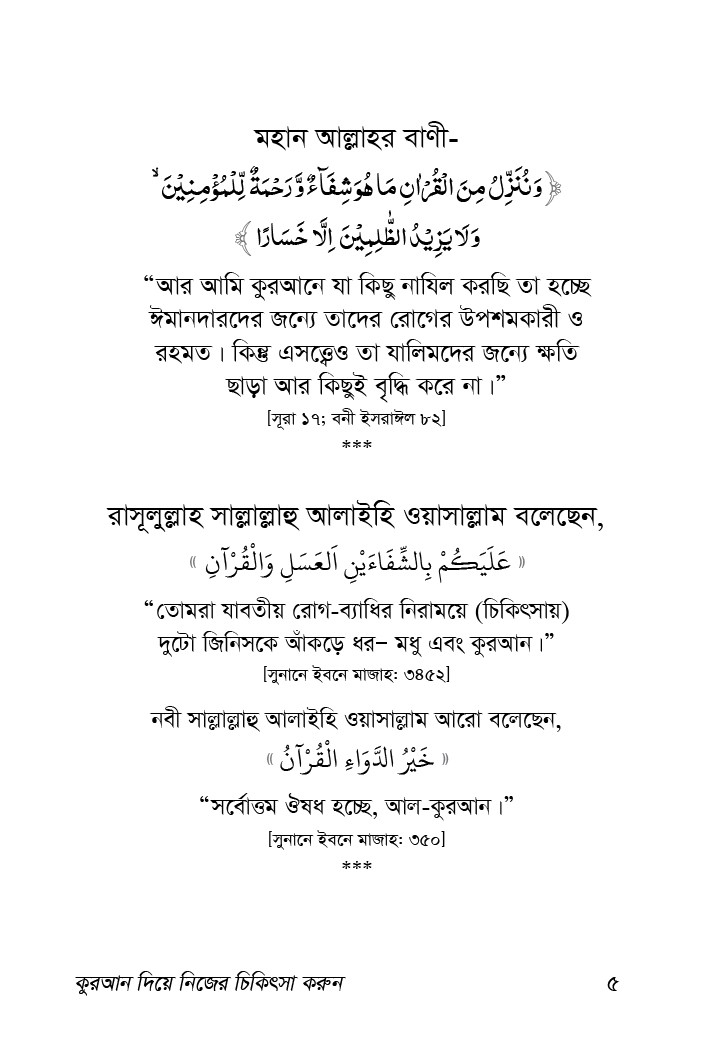 মহান আল্লাহর বাণী-
﴿ وَنُنَزِّلُ مِنَ الْقُرْاٰنِ مَا هُوَ شِفَآءٌ وَّرَحْمَةٌ لِّلْمُؤْمِنِيْنَ ۙ
وَلَا يَزِيْدُ الظّٰلِمِيْنَ اِلَّا خَسَارًا ﴾
“আর আমি কুরআনে যা কিছু নাযিল করছি তা হচ্ছে
ঈমানদারদের জন্যে তাদের রোগের উপশমকারী ও
রহমত। কিন্তু এসত্ত্বেও তা যালিমদের জন্যে ক্ষতি
ছাড়া আর কিছুই বৃদ্ধি করে না।”
[সূরা ১৭; বনী ইসরাঈল ৮২]
***
রাসূলুল্লাহ সাল্লাল্লাহু আলাইহি ওয়াসাল্লাম বলেছেন,
« عَلَيَكُمْ بِالشِّفَاءَيْنِ اَلعَسَلِ وَالْقُرْآنِ »
“তোমরা যাবতীয় রোগ-ব্যাধির নিরাময়ে (চিকিৎসায়)
দুটো জিনিসকে আঁকড়ে ধর– মধু এবং কুরআন।”
[সুনানে ইবনে মাজাহ: ৩৪৫২]
নবী সাল্লাল্লাহু আলাইহি ওয়াসাল্লাম আরো বলেছেন,
« خَيْرُ الدَّوَاءِ الْقُرْآنُ »
“সর্বোত্তম ঔষধ হচ্ছে, আল-কুরআন।”
[সুনানে ইবনে মাজাহ: ৩৫০]
***
কুরআন দিয়ে নিজের চিকিৎসা করুন ৫